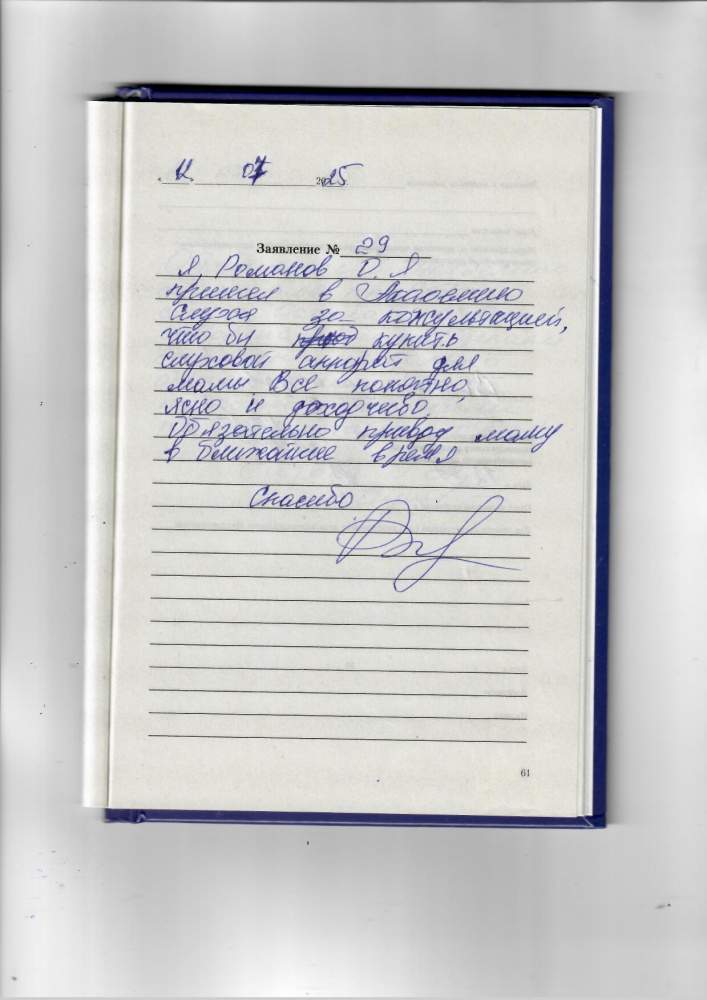 « 12 » 07 2025
Заявление № 29
Я, Романов О. Я
пришел в Академию
слуха за консультацией,
что бы купить
слуховой аппарат для
мамы Все понятно,
ясно и доходчиво.
Обязательно приведу маму
в ближайшее время
Спасибо
61